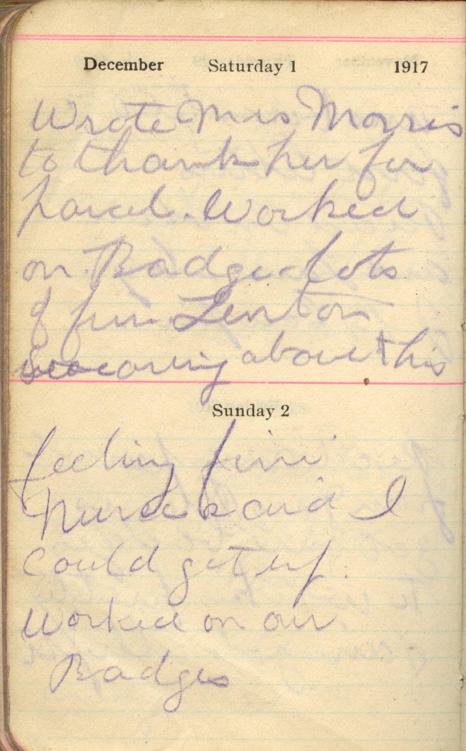 December Saturday 1 1917
Wrote Mrs Morris
to thank her for
parcel. Worked
on Badge lots
of fun Linton
swearing about his
Sunday 2
feeling fine
Nurse said I
could get up.
Worked on our
Badges